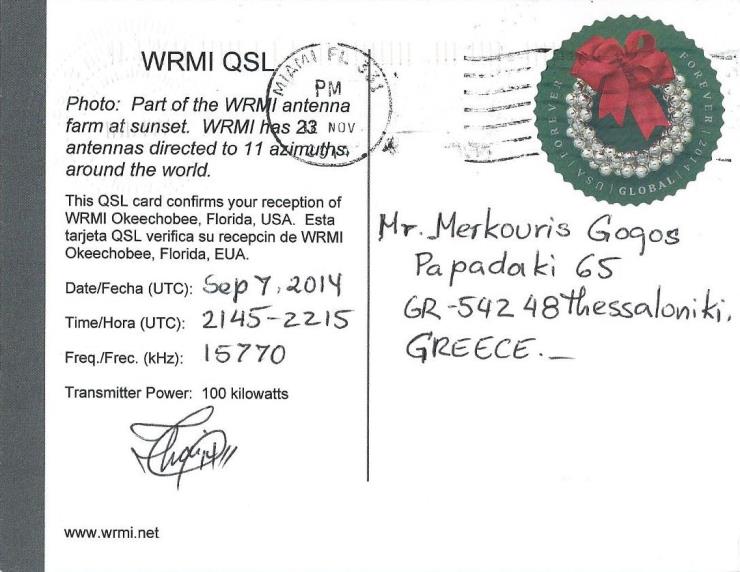 WRMI QSL
MIAMI FL 331
PM
NOV
Photo: Part of the WRMI antenna
farm at sunset. WRMI has 23
antennas directed to 11 azimuths
around the world.
This QSL card confirms your reception of
WRMI Okeechobee, Florida, USA. Esta
tarjeta QSL verifica su recepcin de WRMI
Okeechobee, Florida, EUA.
Date/Fecha (UTC): Sep 7, 2014
Time/Hora (UTC): 2145-2215
Freq./Frec. (kHz): 15770
Transmitter Power: 100 kilowatts
www.wrmi.net
FOREVER | USA | GLOBAL | 2014 | FOREVER
Mr. Merkouris Gogos
Papadaki 65
GR-542 48 Thessaloniki.
GREECE._